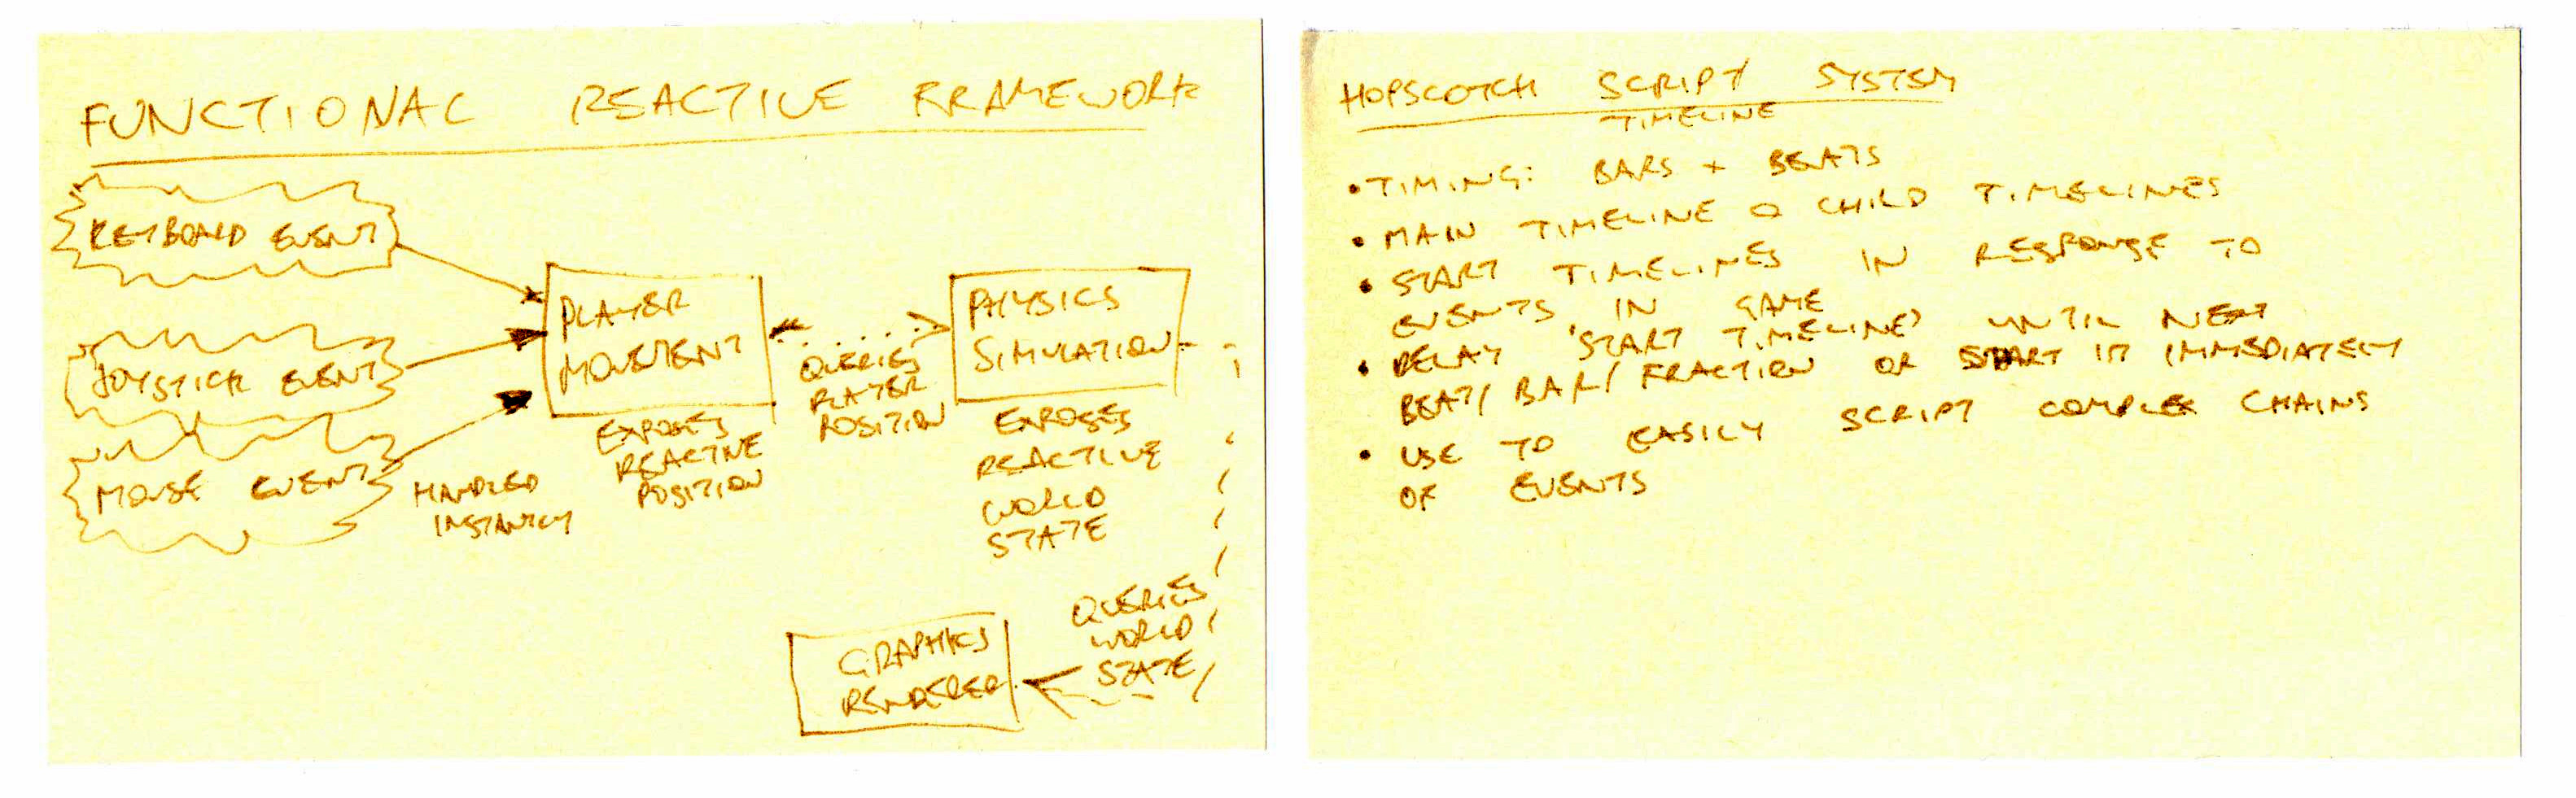 FUNCTIONAL REACTIVE FRAMEWORK
KEYBOARD EVENT
JOYSTICK EVENT
MOUSE EVENT
HANDLED
INSTANTLY
PLAYER
MOVEMENT
EXPOSES
REACTIVE
POSITION
QUERIES
PLAYER
POSITION
PHYSICS
SIMULATION
EXPOSES
REACTIVE
WORLD
STATE
QUERIES
WORLD
STATE
GRAPHICS
RENDERER
HOPSCOTCH SCRIPT/ SYSTEM
TIMELINE
• TIMING: BARS + BEATS
• MAIN TIMELINE & CHILD TIMELINES
• START TIMELINES IN RESPONSE TO
EVENTS IN GAME
• DELAY 'START TIMELINE' UNTIL NEXT
BEAT/ BAR/ FRACTION OR START IT IMMEDIATELY
• USE TO EASILY SCRIPT COMPLEX CHAINS
OF EVENTS